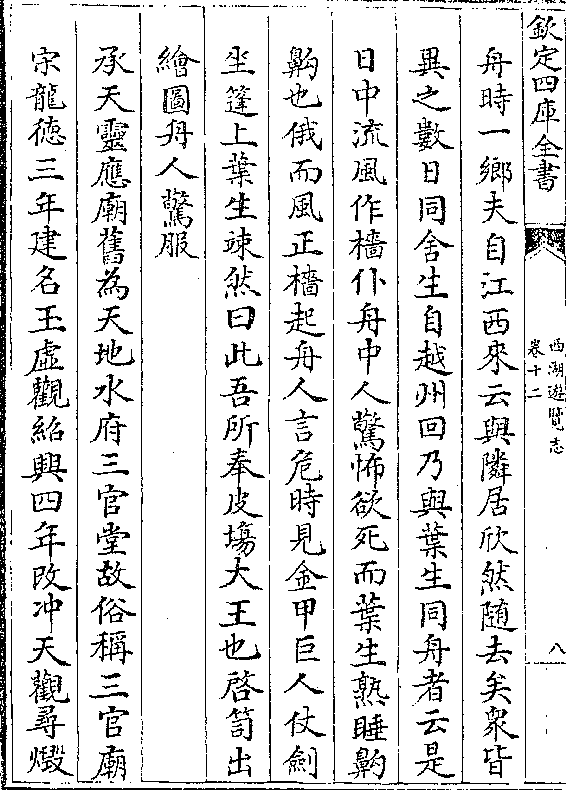 欽定四庫全書
西湖遊覽志
卷十二
八
舟時一鄉夫自江西來云與隣居欣然随去矣衆皆
異之數日同舍生自越州回乃與葉生同舟者云是
日中流風作檣仆舟中人驚怖欲死而葉生熟睡齁
齁也俄而風正檣起舟人言危時見金甲巨人仗劍
坐篷上葉生竦然曰此吾所奉皮塲大王也啓笥出
繪圖舟人驚服
承天靈應廟舊為天地水府三官堂故俗稱三官廟
宋龍德三年建名玉虛觀紹興四年改沖天觀尋燬